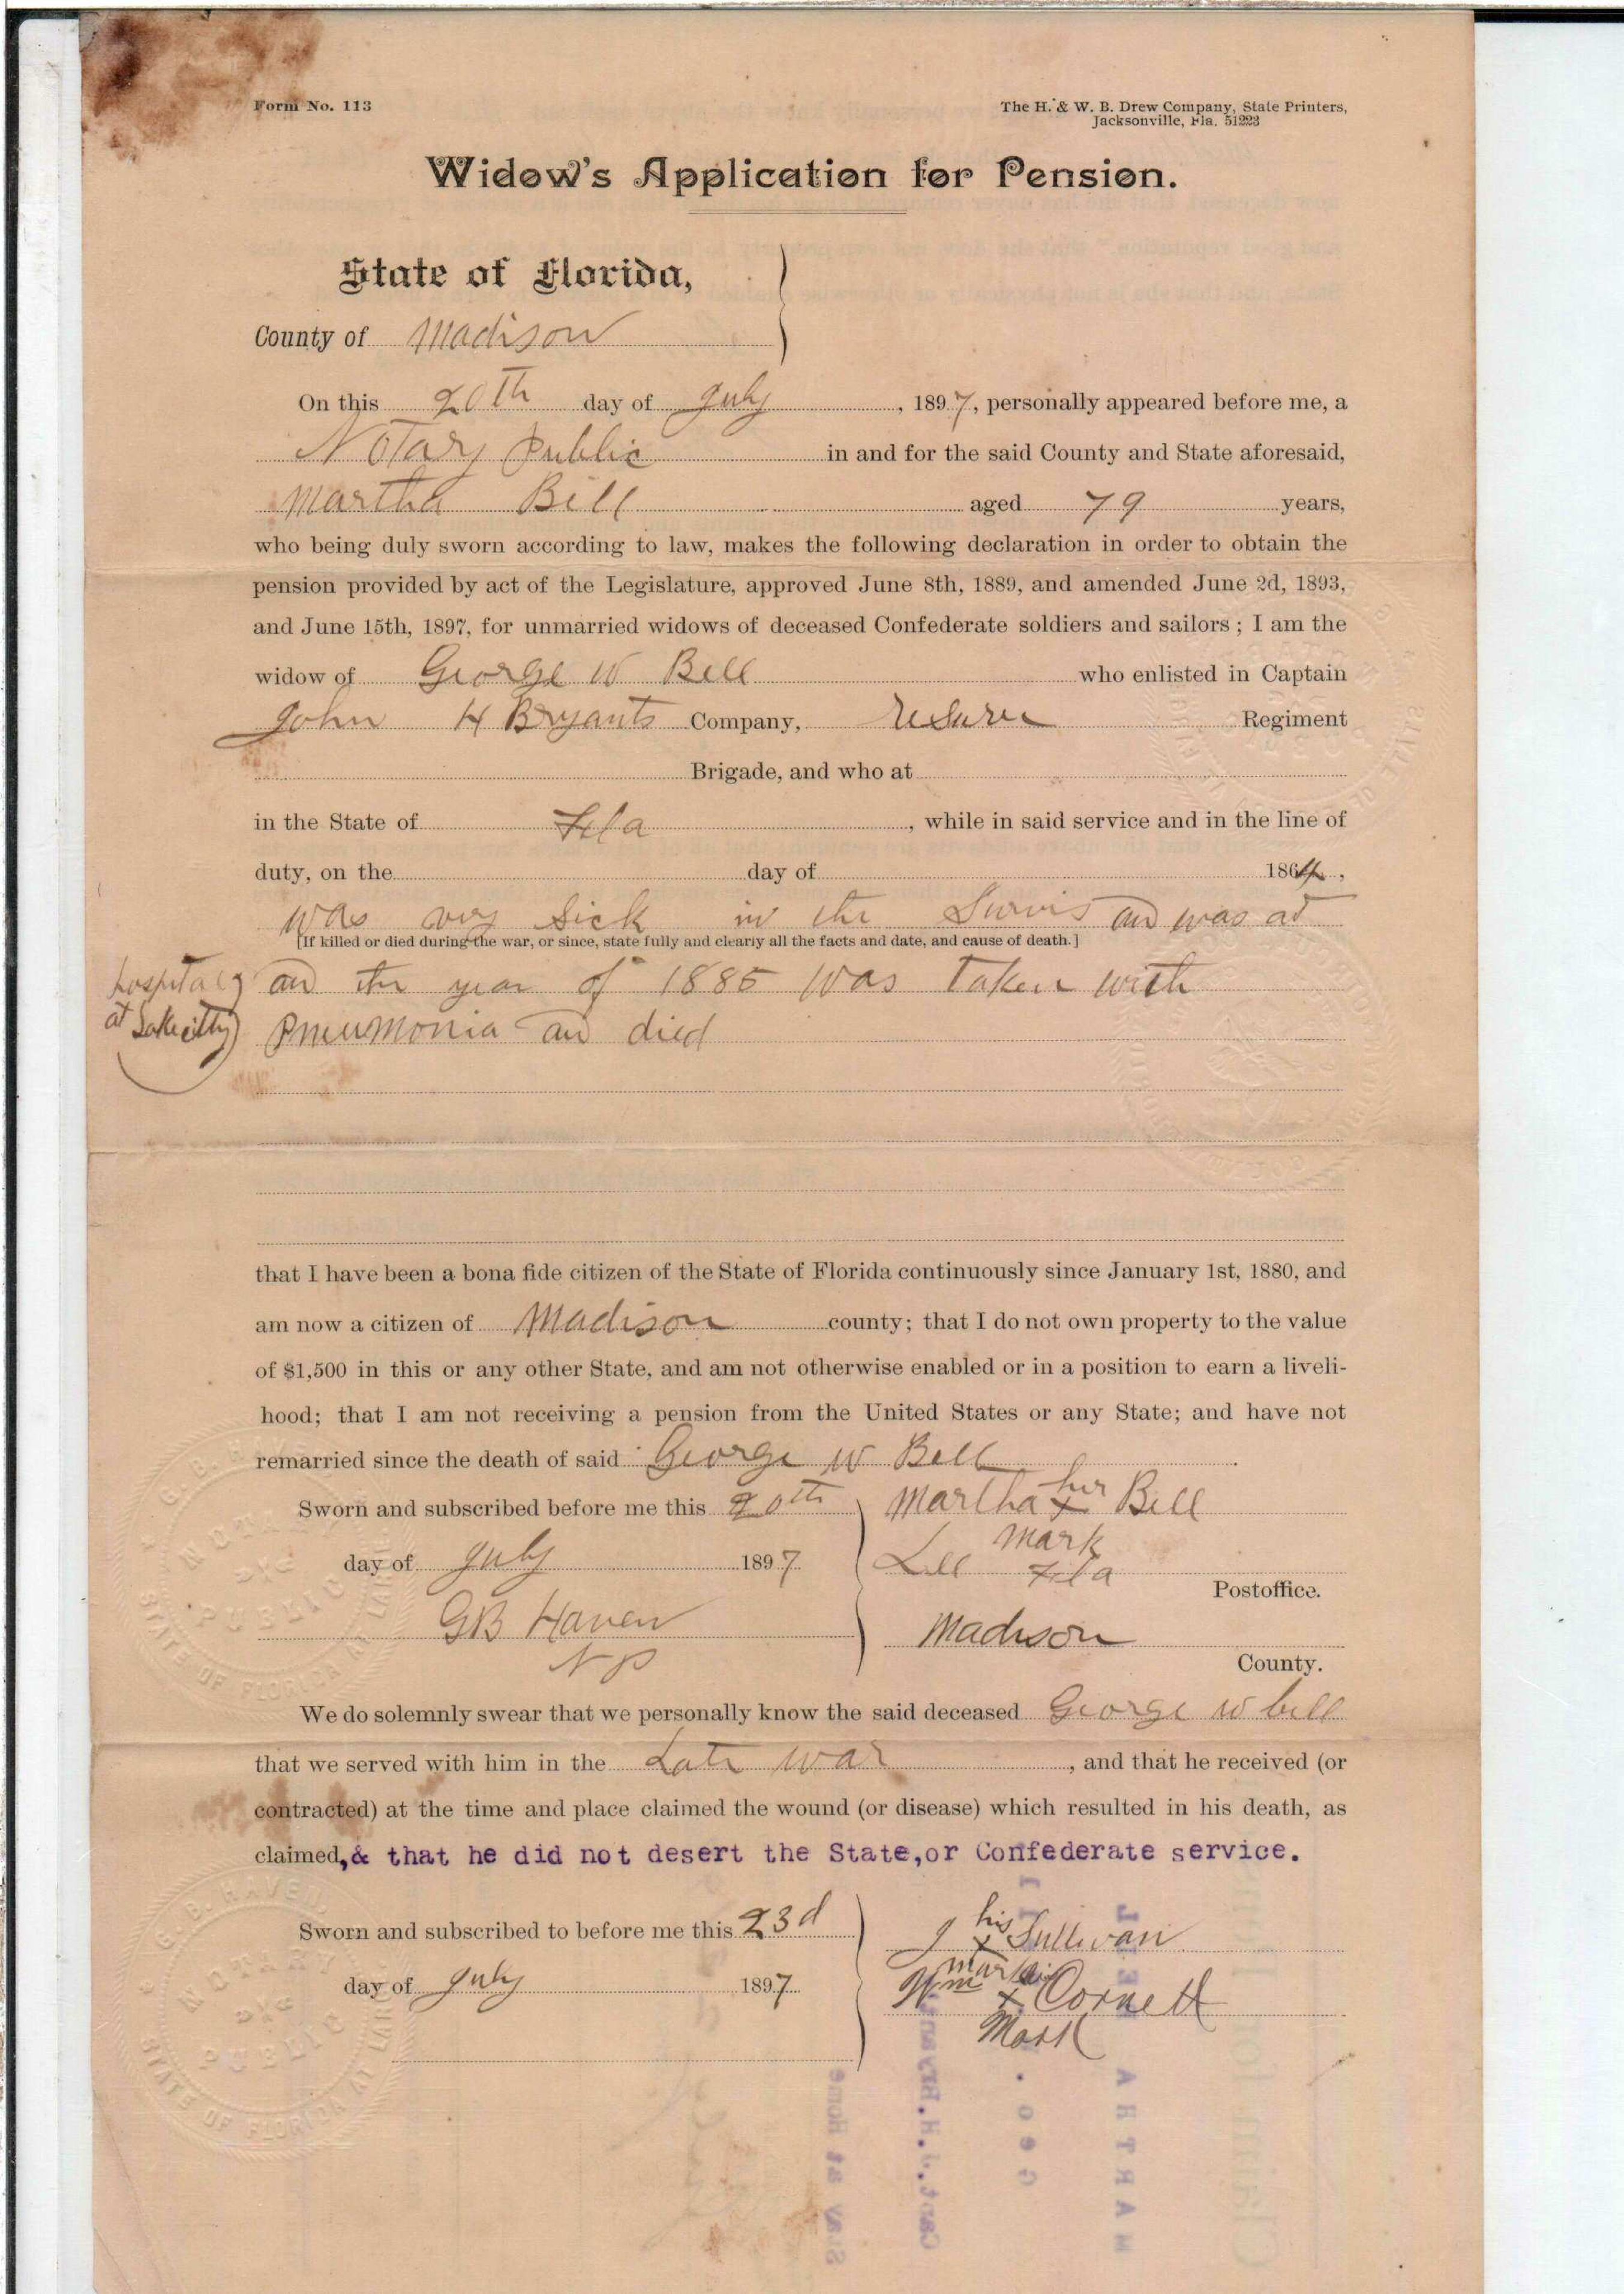 Form No. 113
The H. & W. B. Drew Company, State Printers,
Jacksonville, Fla. 51223
Widow's Application for Pension.
State of Florida,
County of Madison
On this 20th day of July, 1897, personally appeared before me, a
Notary Public in and for the said County and State aforesaid,
Martha Bell aged 79 years,
who being duly sworn according to law, makes the following declaration in order to obtain the
pension provided by act of the Legislature, approved June 8th, 1889, and amended June 2d, 1893,
and June 15th, 1897, for unmarried widows of deceased Confederate soldiers and sailors; I am the
widow of George W Bell who enlisted in Captain
John H Bryants Company, Regiment
Brigade, and who at
in the State of Fla, while in said service and in the line of
duty, on the day of 1864,
was very sick in the and was at
[If killed or died during the war, or since, state fully and clearly all the facts and date, and cause of death.]
hospital and the year of 1885 was taken with
at pneumonia and died
that I have been a bona fide citizen of the State of Florida continuously since January 1st, 1880, and
am now a citizen of Madison county; that I do not own property to the value
of $1,500 in this or any other State, and am not otherwise enabled or in a position to earn a liveli-
hood; that I am not receiving a pension from the United States or any State; and have not
remarried since the death of said George W Bell
Sworn and subscribed before me this 20th
day of July 1897
GB Haven
N P
Martha her x Bell
mark
Lee Fla
Postoffice.
Madison
County.
We do solemnly swear that we personally know the said deceased George W bell
that we served with him in the Late war, and that he received (or
contracted) at the time and place claimed the wound (or disease) which resulted in his death, as
claimed,& that he did not desert the State,or Confederate service.
Sworn and subscribed to before me this 23d
day of July 1897
J his x Sullivan
mark
Wm his x Cornett
Mark
G. B. HAVEN
NOTARY
PUBLIC
STATE OF FLORIDA AT LARGE